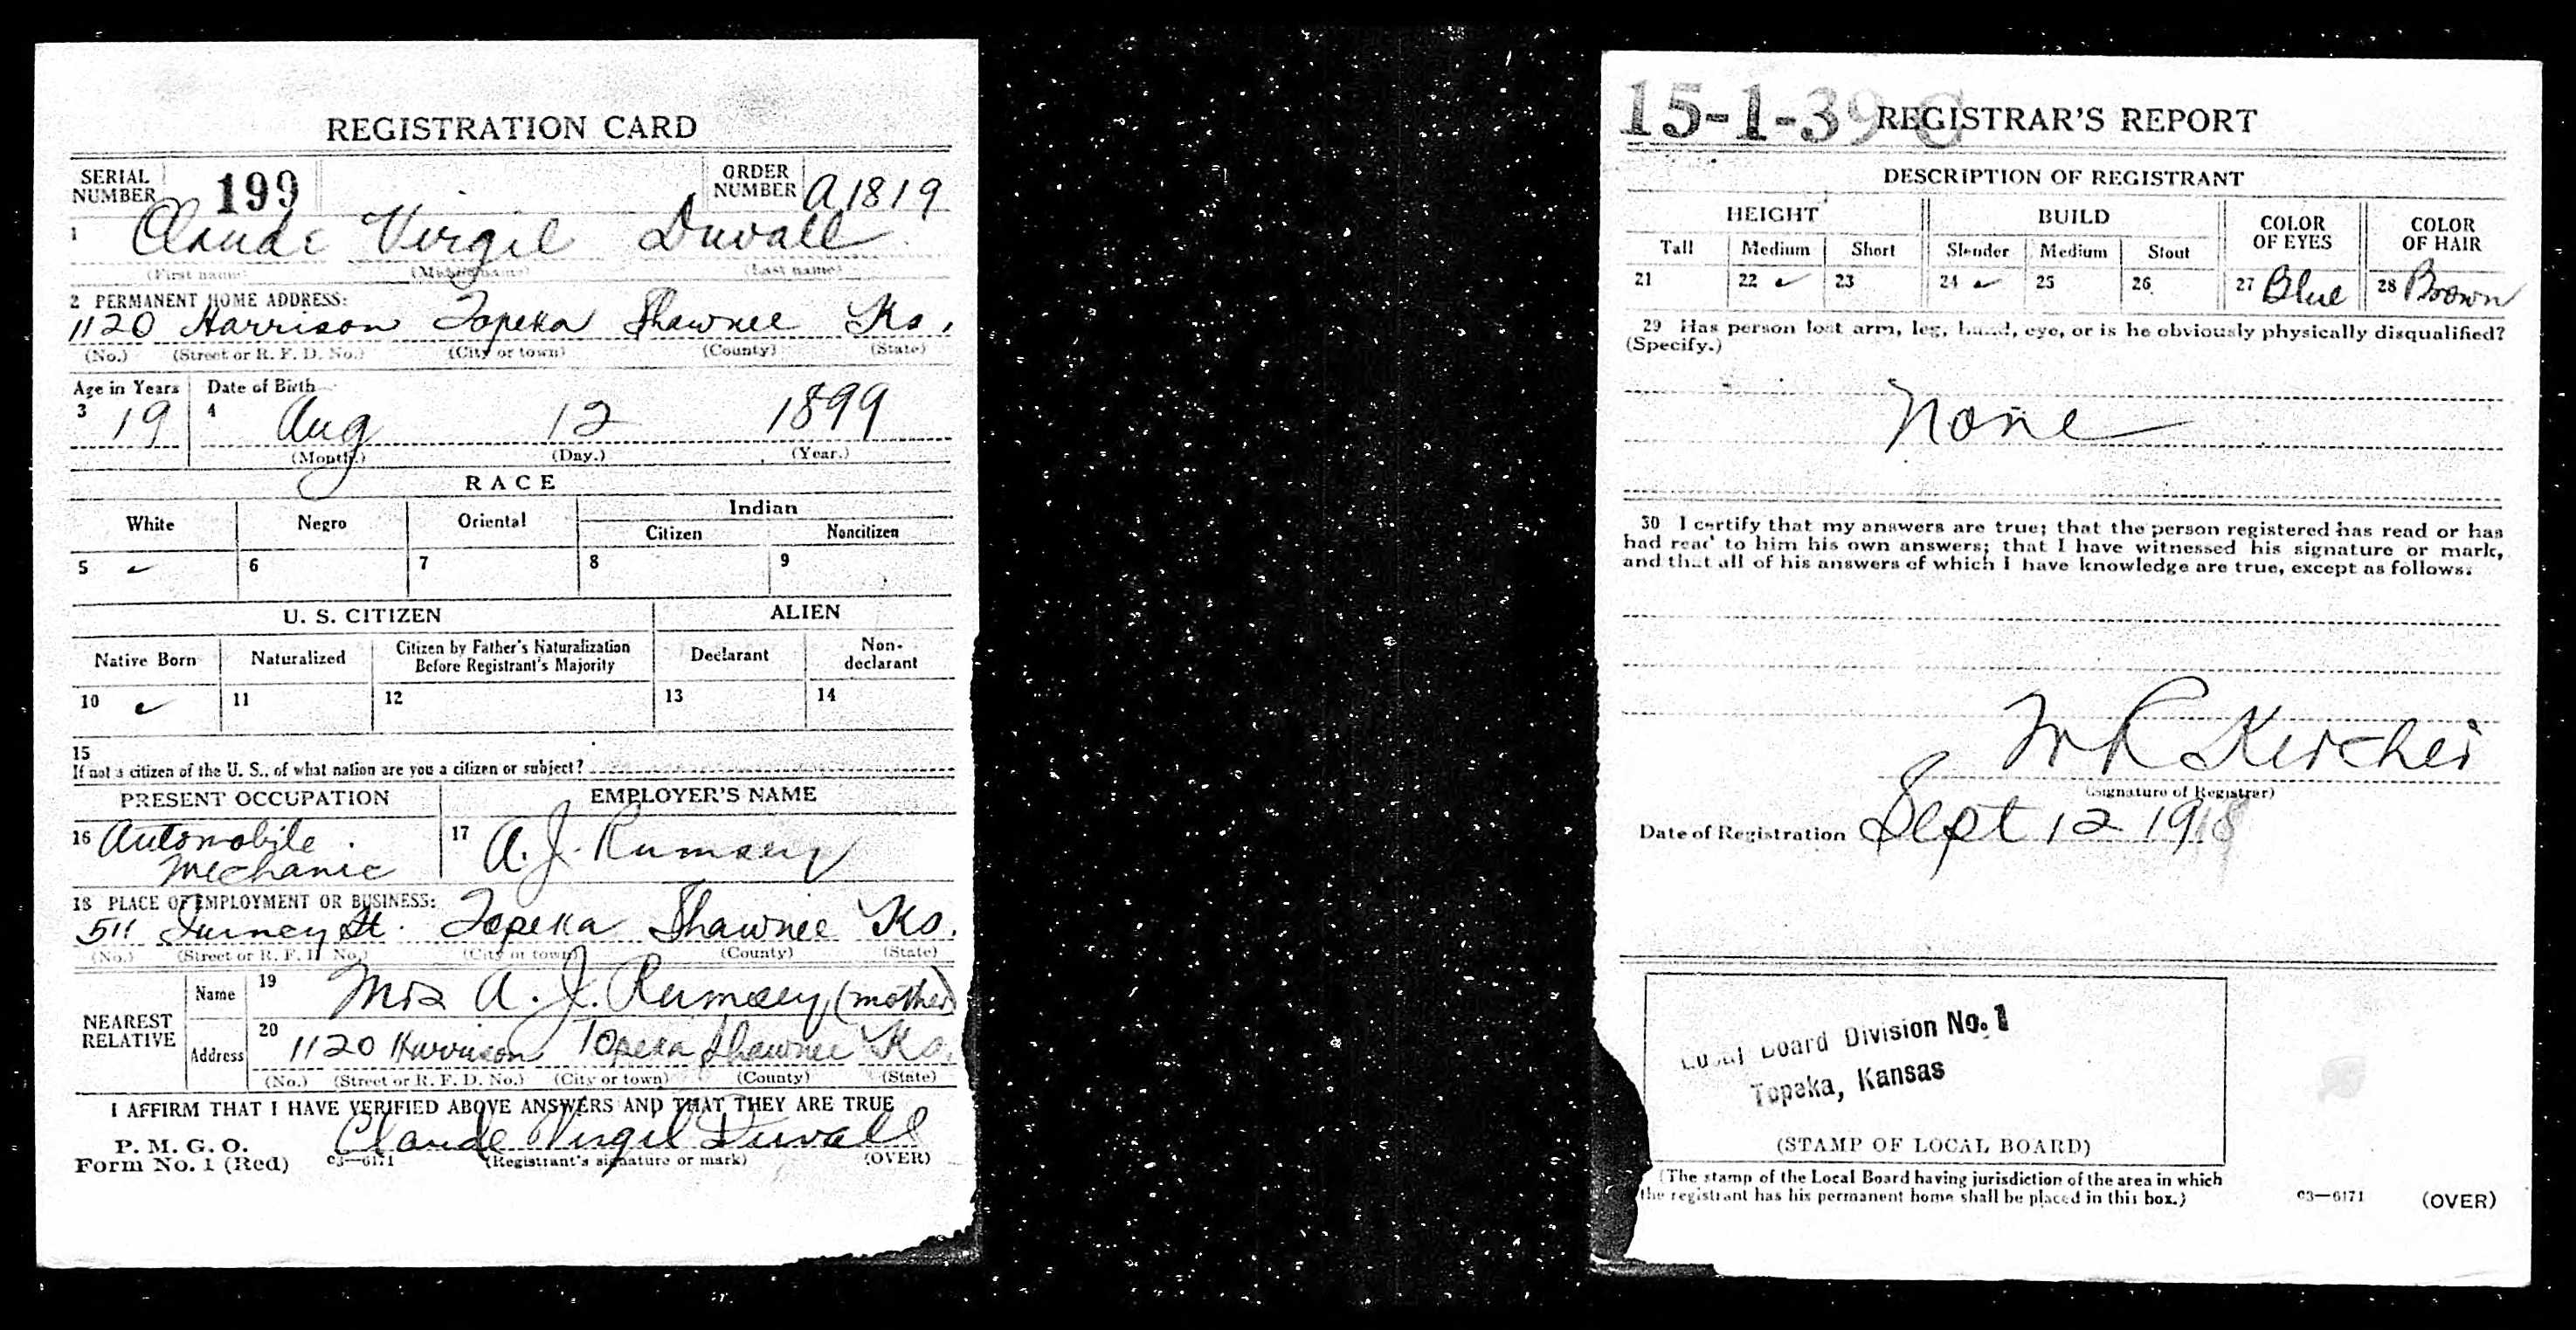 REGISTRATION CARD
SERIAL NUMBER 199 ORDER NUMBER A1819
1 Claude Virgil Duvall
(First name) (Middle name) (Last name)
2 PERMANENT HOME ADDRESS:
1120 Harrison Topeka Shawnee Ks.
(No.) (Street or R. F. D. No.) (City or town) (County) (State)
Age in Years Date of Birth
3 19 4 Aug 12 1899
(Month.) (Day.) (Year.)
RACE
White Negro Oriental Indian
Citizen Noncitizen
5 ✓ 6 7 8 9
U. S. CITIZEN ALIEN
Native Born Naturalized Citizen by Father's Naturalization Before Registrant's Majority Declarant Non-declarant
10 ✓ 11 12 13 14
15
If not a citizen of the U. S., of what nation are you a citizen or subject?
PRESENT OCCUPATION EMPLOYER'S NAME
16 Automobile Mechanic 17 A. J. Rumsey
18 PLACE OF EMPLOYMENT OR BUSINESS:
511 St. Topeka Shawnee Ks.
(No.) (Street or R. F. D. No.) (City or town) (County) (State)
NEAREST RELATIVE
Name 19 Mrs A. J. Rumsey (mother)
Address 20 1120 Harrison Topeka Shawnee Ks.
(No.) (Street or R. F. D. No.) (City or town) (County) (State)
I AFFIRM THAT I HAVE VERIFIED ABOVE ANSWERS AND THAT THEY ARE TRUE
P. M. G. O.
Form No. 1 (Red) Claude Virgil Duvall
c3—6171 (Registrant's signature or mark) (OVER)
15-1-39 C REGISTRAR'S REPORT
DESCRIPTION OF REGISTRANT
HEIGHT BUILD COLOR OF EYES COLOR OF HAIR
Tall Medium Short Slender Medium Stout
21 22 ✓ 23 24 ✓ 25 26 27 Blue 28 Brown
29 Has person lost arm, leg, hand, eye, or is he obviously physically disqualified?
(Specify.)
None
30 I certify that my answers are true; that the person registered has read or has
had read to him his own answers; that I have witnessed his signature or mark,
and that all of his answers of which I have knowledge are true, except as follows:
Kircher
(Signature of Registrar)
Date of Registration Sept 12 1918
Local Board Division No. 1
Topeka, Kansas
(STAMP OF LOCAL BOARD)
(The stamp of the Local Board having jurisdiction of the area in which
the registrant has his permanent home shall be placed in this box.)
c3—6171 (OVER)